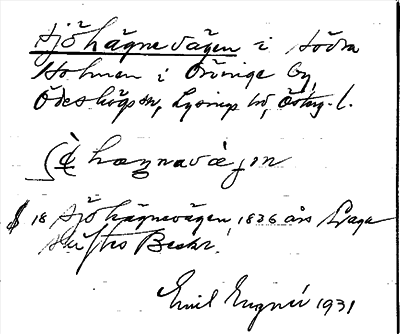 Sjöhägnevägen i södra
Holmen i Öninge by,
Ödeshögs sn, Lysings hd, Östg. l.
hægnavägen
§ 18 Sjöhägnevägen, 1826 års Laga
skiftes Beskr.
Emil Engnér 1931